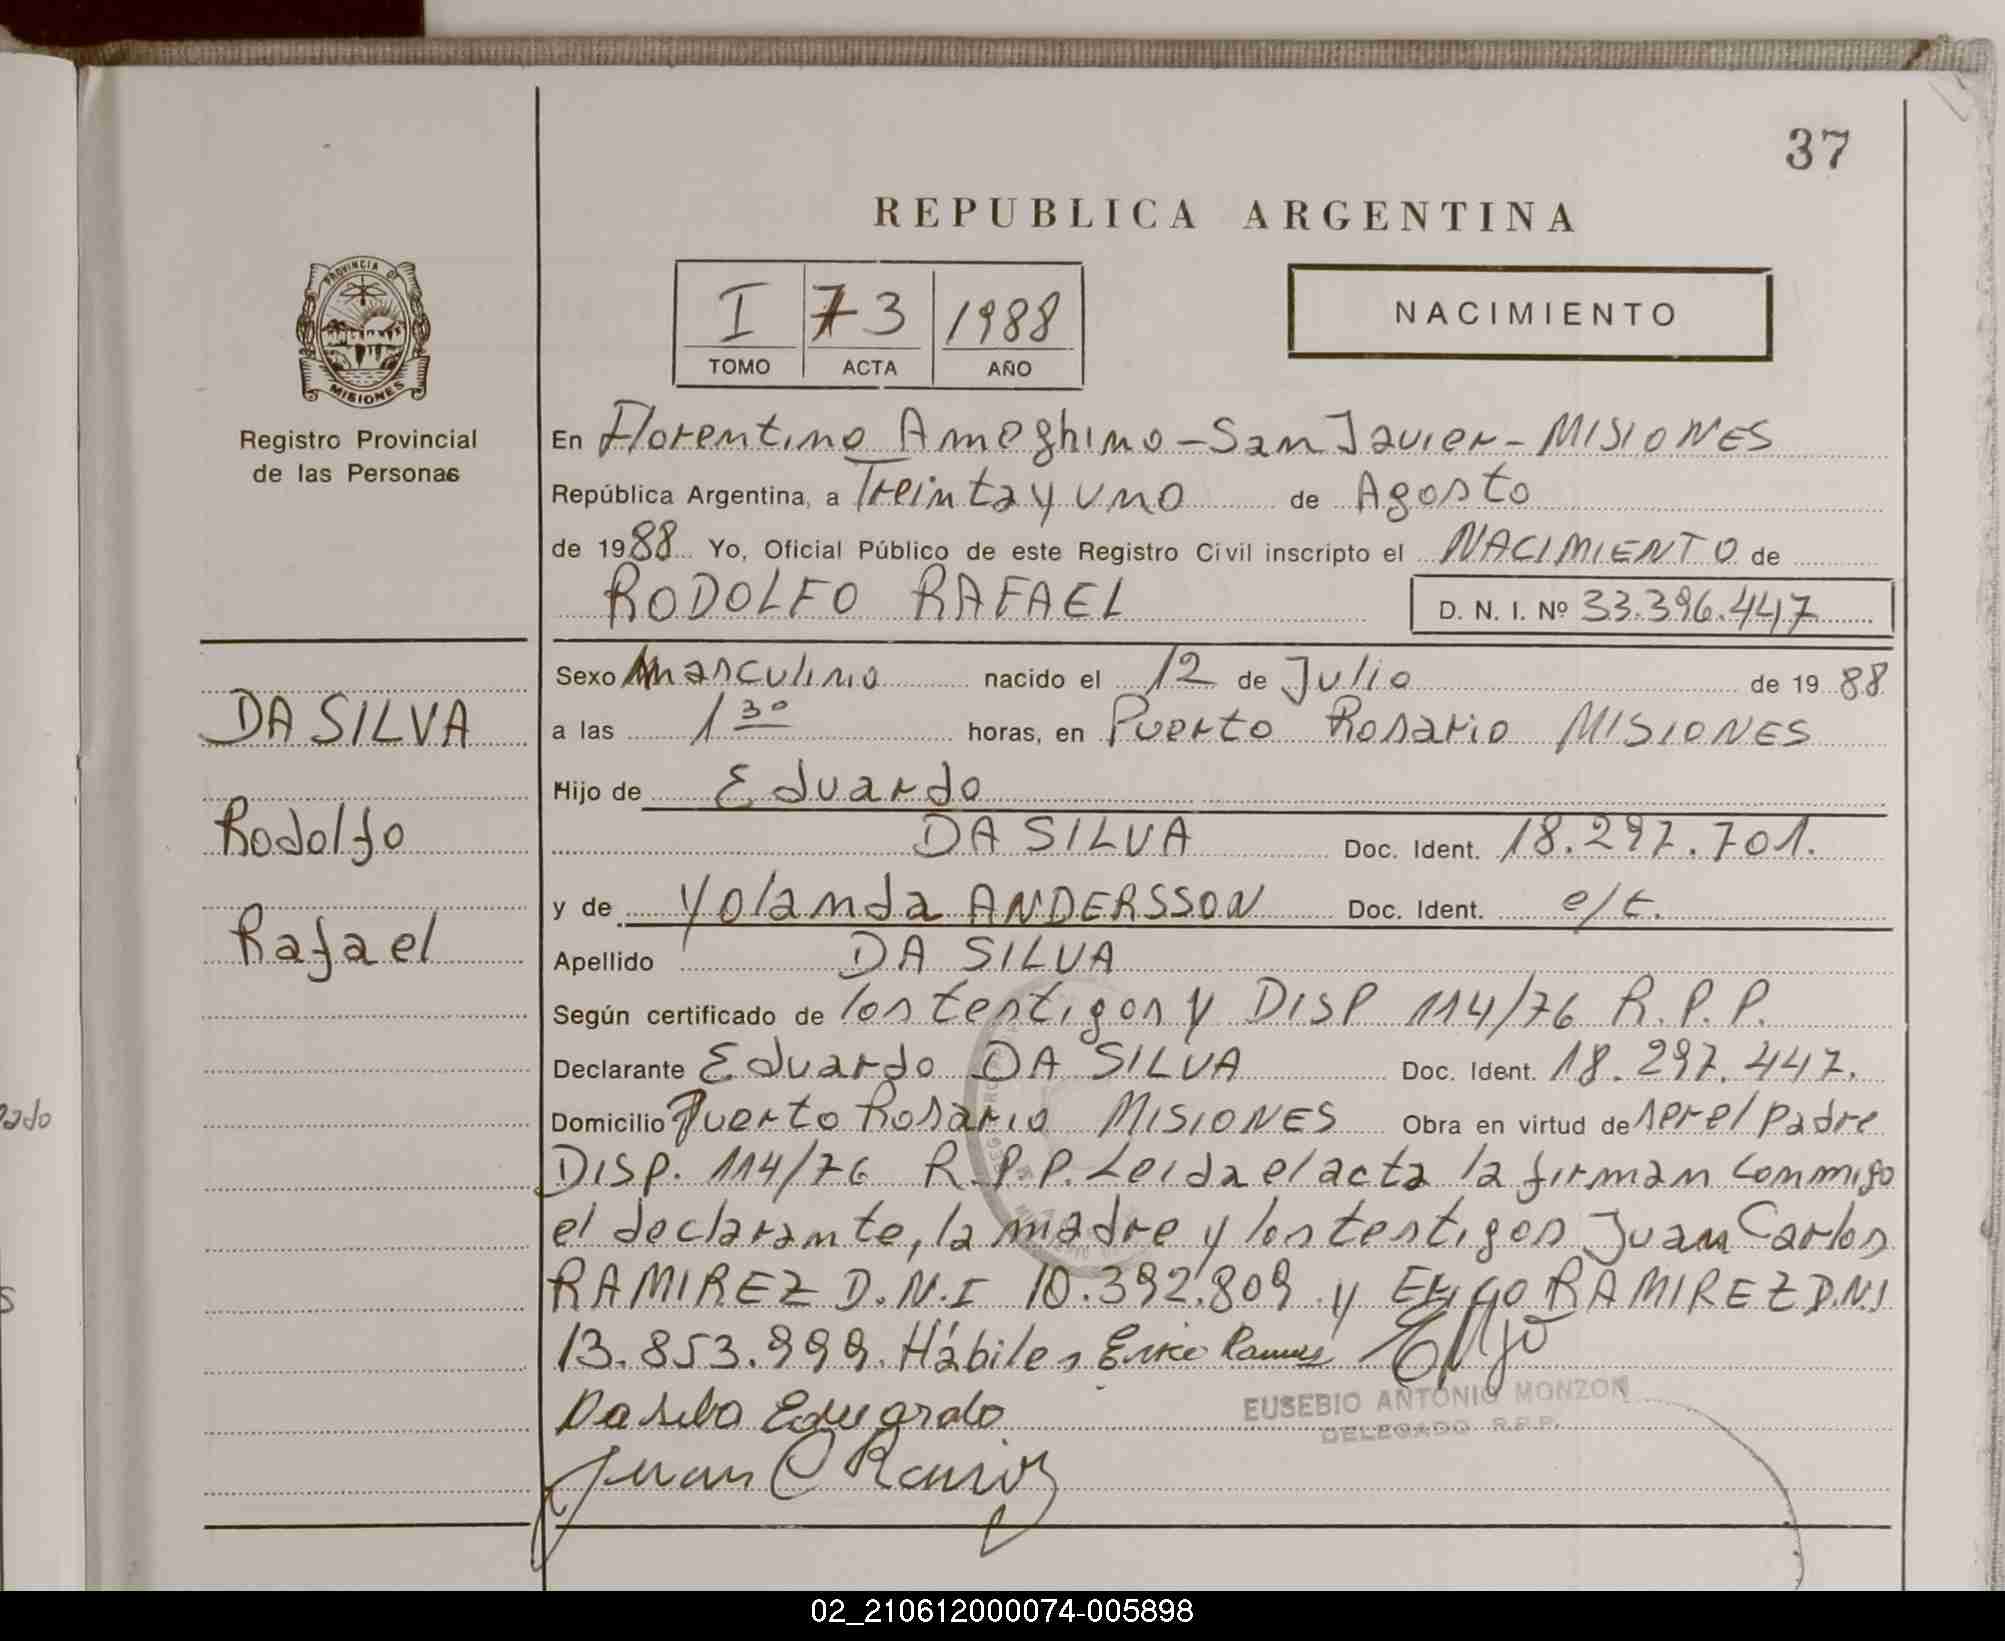 37
REPUBLICA ARGENTINA
PROVINCIA DE
MISIONES
Registro Provincial
de las Personas
I 73 1988
TOMO ACTA AÑO
NACIMIENTO
En Florentino Ameghino - San Javier - MISIONES
República Argentina, a Treinta y uno de Agosto
de 1988 Yo, Oficial Público de este Registro Civil inscripto el NACIMIENTO de
RODOLFO RAFAEL D. N. I. Nº 33.396.447
Sexo Masculino nacido el 12 de Julio de 1988
DA SILVA
a las 1 30 horas, en Puerto Rosario MISIONES
Hijo de Eduardo
Rodolfo
DA SILVA Doc. Ident. 18.297.701.
y de Yolanda ANDERSSON Doc. Ident. e/t.
Rafael
Apellido DA SILVA
Según certificado de los testigos y DISP 114/76 R.P.P.
Declarante Eduardo DA SILVA Doc. Ident. 18.297.447.
Domicilio Puerto Rosario MISIONES Obra en virtud de ser el padre
DISP. 114/76 R.P.P. Leida el acta la firman conmigo
el declarante, la madre y los testigos Juan Carlos
RAMIREZ D.N.I 10.392.809 y RAMIREZ D.N.I
13.853.999. Hábiles
Da Silva Eduardo
EUSEBIO ANTONIO MONZON
DELEGADO R.P.P.
Juan C Ramirez
02_210612000074-005898